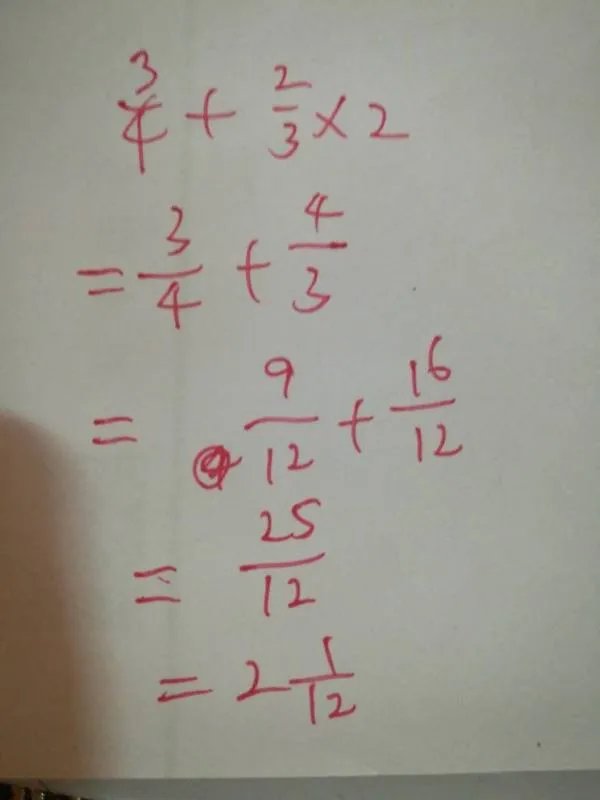 3/4 + 2/3 × 2
= 3/4 + 4/3
= 9/12 + 16/12
= 25/12
= 2 1/12